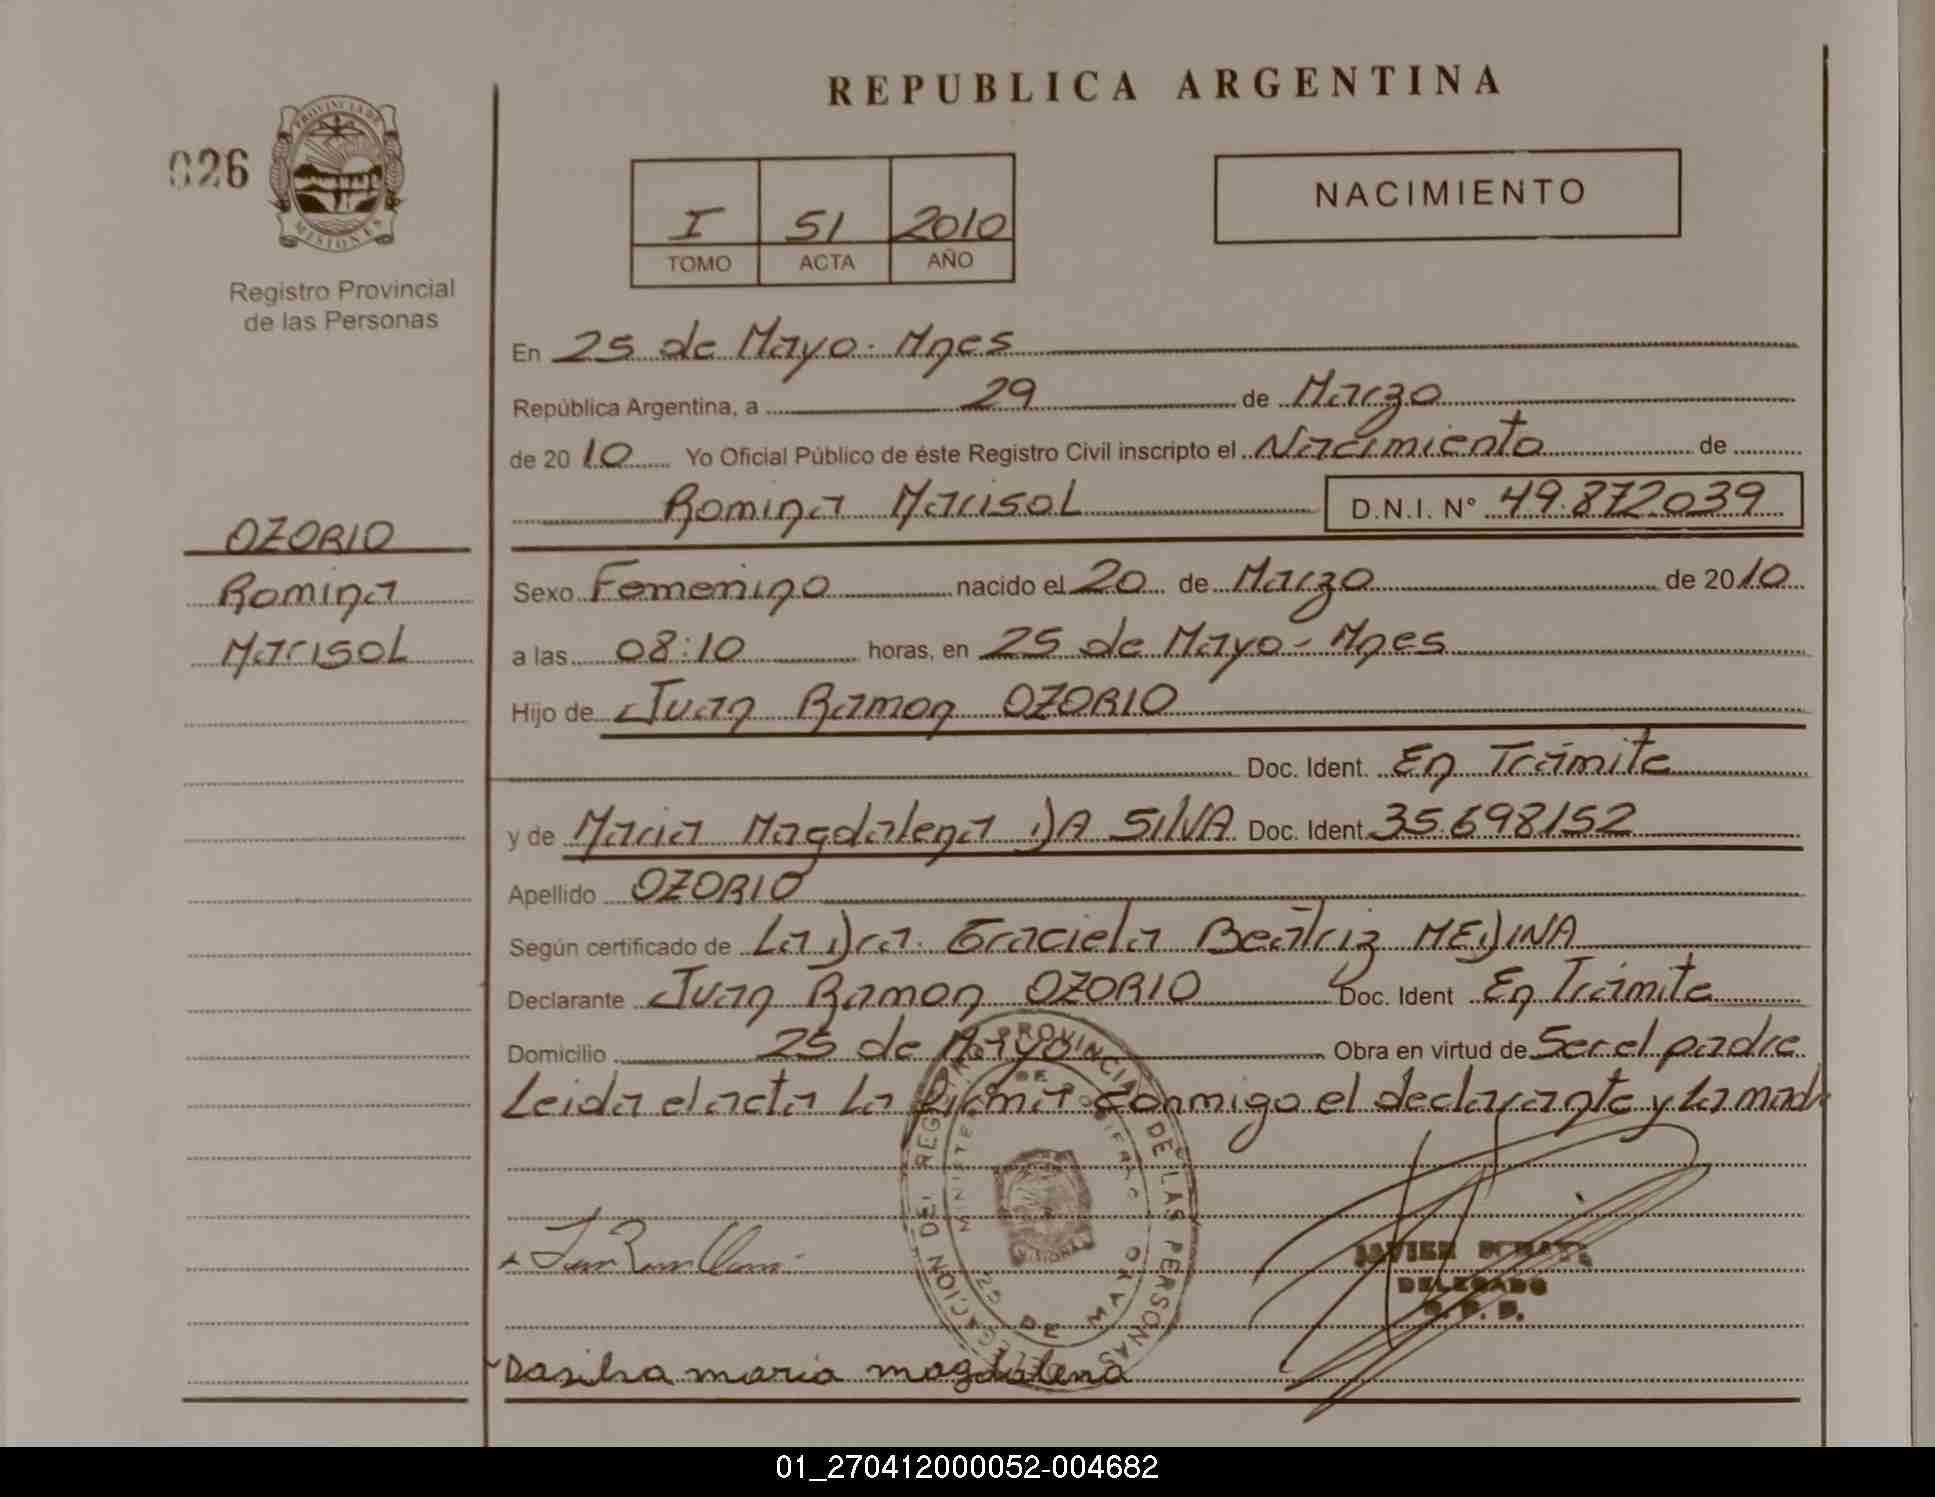 REPUBLICA ARGENTINA
026
PROVINCIA DE
MISIONES
Registro Provincial
de las Personas
NACIMIENTO
I 51 2010
TOMO ACTA AÑO
En 25 de Mayo. Mnes
República Argentina, a 29 de Marzo
de 2010 Yo Oficial Público de éste Registro Civil inscripto el Nacimiento de
Romina Marisol D.N.I. N° 49.872.039
OZORIO
Romina
Marisol
Sexo Femenino nacido el 20 de Marzo de 2010
a las 08:10 horas, en 25 de Mayo - Mnes
Hijo de Juan Ramon OZORIO
Doc. Ident. En Trámite
y de Maria Magdalena DA SILVA Doc. Ident 35.698152
Apellido OZORIO
Según certificado de La Dra. Graciela Beatriz MEDINA
Declarante Juan Ramon OZORIO Doc. Ident En Trámite
Domicilio 25 de Mayo Obra en virtud de Ser el padre
Leida el acta la firma conmigo el declarante y la madr
DELEGACION DEL REGISTRO PROVINCIAL DE LAS PERSONAS
MINISTERIO DE GOBIERNO
25 DE MAYO
MISIONES
JAVIER
DELEGADO
Dasilva maria magdalena
01_270412000052-004682